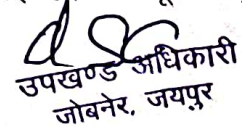 उपखण्ड अधिकारी
जोबनेर, जयपुर